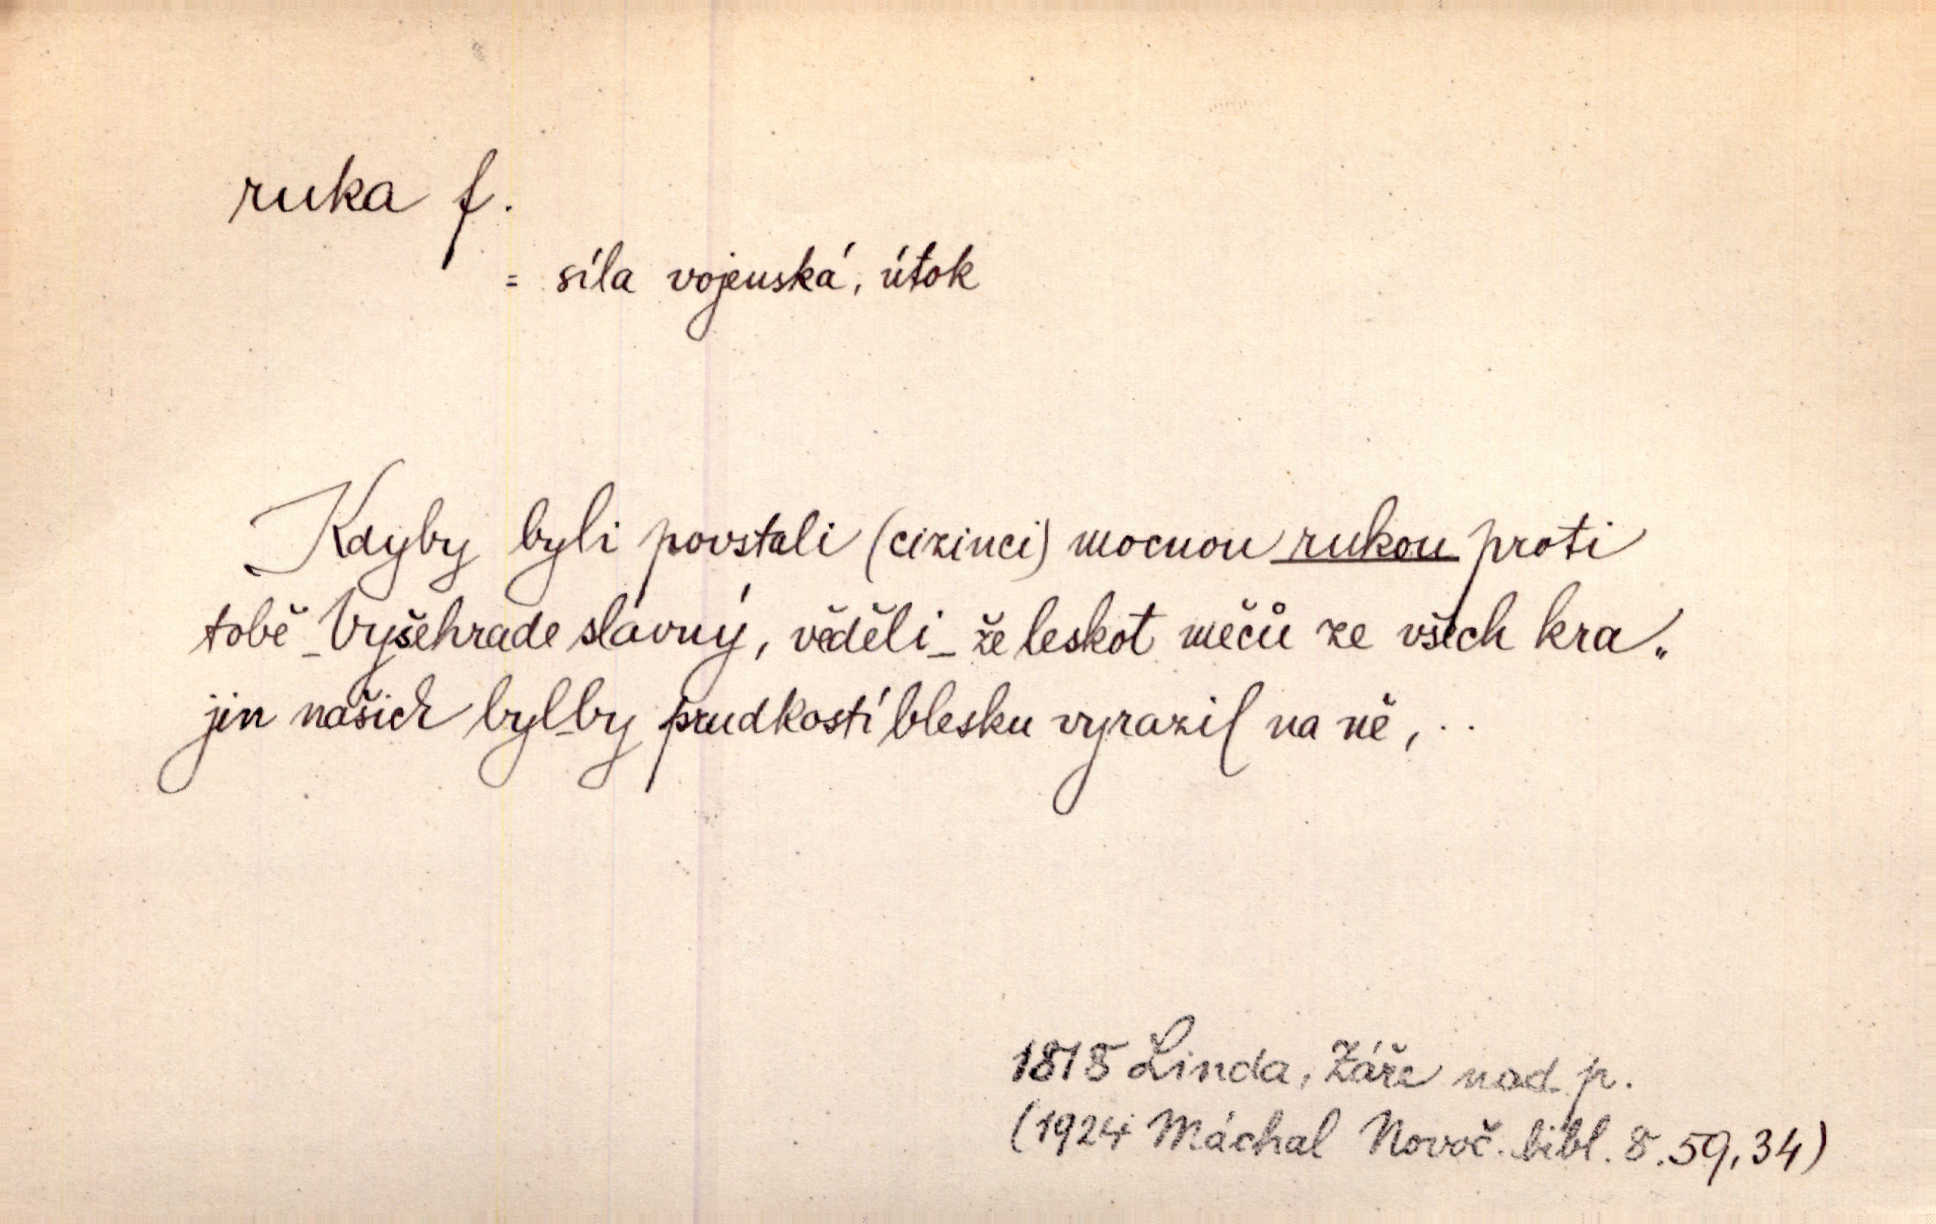 ruka f.
= síla vojenská, útok
Kdyby byli povstali (cizinci) mocnou rukou proti
tobě_Vyšehrade slavný, věděli_že leskot mečů ze všech kra„
jin našich byl-by prudkostí blesku vyrazil na ně, ..
1818 Linda, Záře nad p.
(1924 Máchal Novoč. bibl. 8. 59, 34)